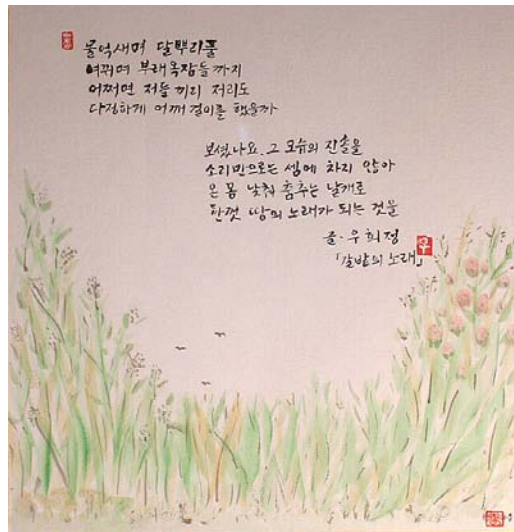 물억새며 달뿌리풀
여뀌며 부래옥잠들까지
어쩌면 저들끼리 저리도
다정하게 어깨 겯이를 했을까
보셨나요. 그 모습의 진솔을
소리만으로는 셈에 차지 않아
온 몸 낮춰 춤추는 날개로
한껏 땅의 노래가 되는 것을
글·우희정
「갈밭의 노래」